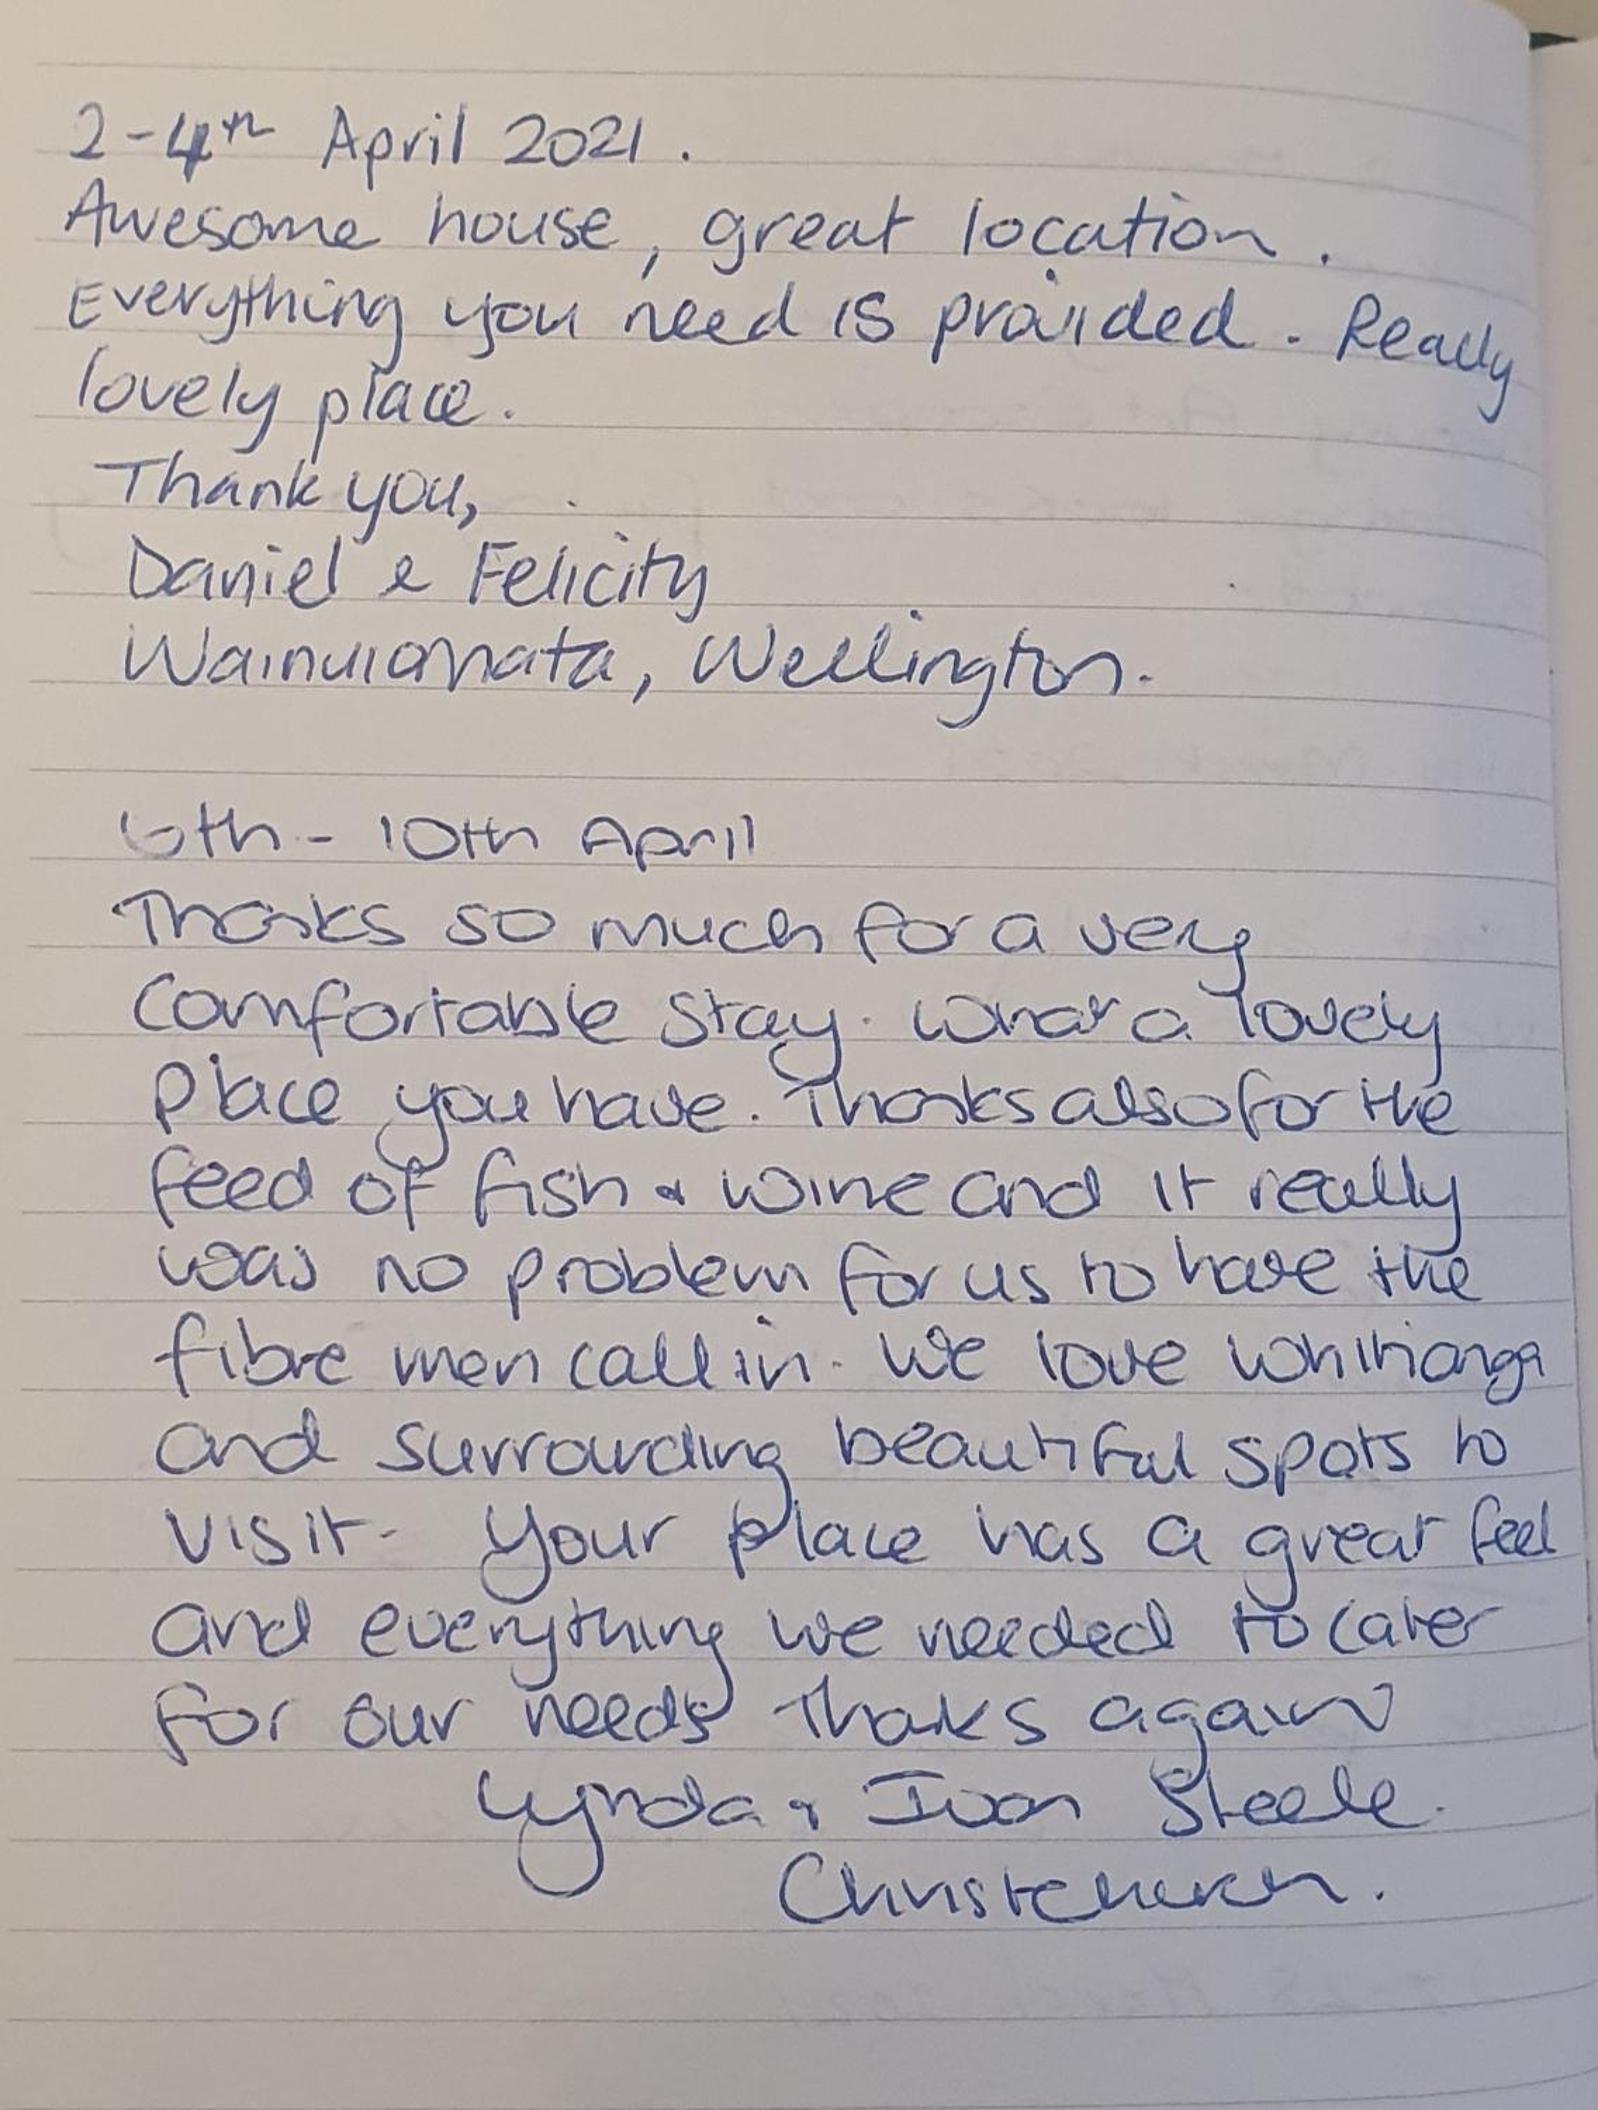 2-4th April 2021.
Awesome house, great location.
Everything you need is provided. Really
lovely place.
Thank you,
Daniel & Felicity
Wainuiomata, Wellington.
6th - 10th April
Thanks so much for a very
comfortable stay. What a lovely
place you have. Thanks also for the
feed of fish & wine and it really
was no problem for us to have the
fibre men call in. We love Whitianga
and surrounding beautiful spots to
visit. Your place has a great feel
and everything we needed to cater
for our needs Thanks again
Lynda & Ivan Steele.
Christchurch.